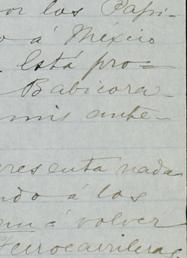 por los Papi-
o á México
Está pro-
Babicora
mis ante-
enta nada
ndo á los
á volver
Ferrocarrileras